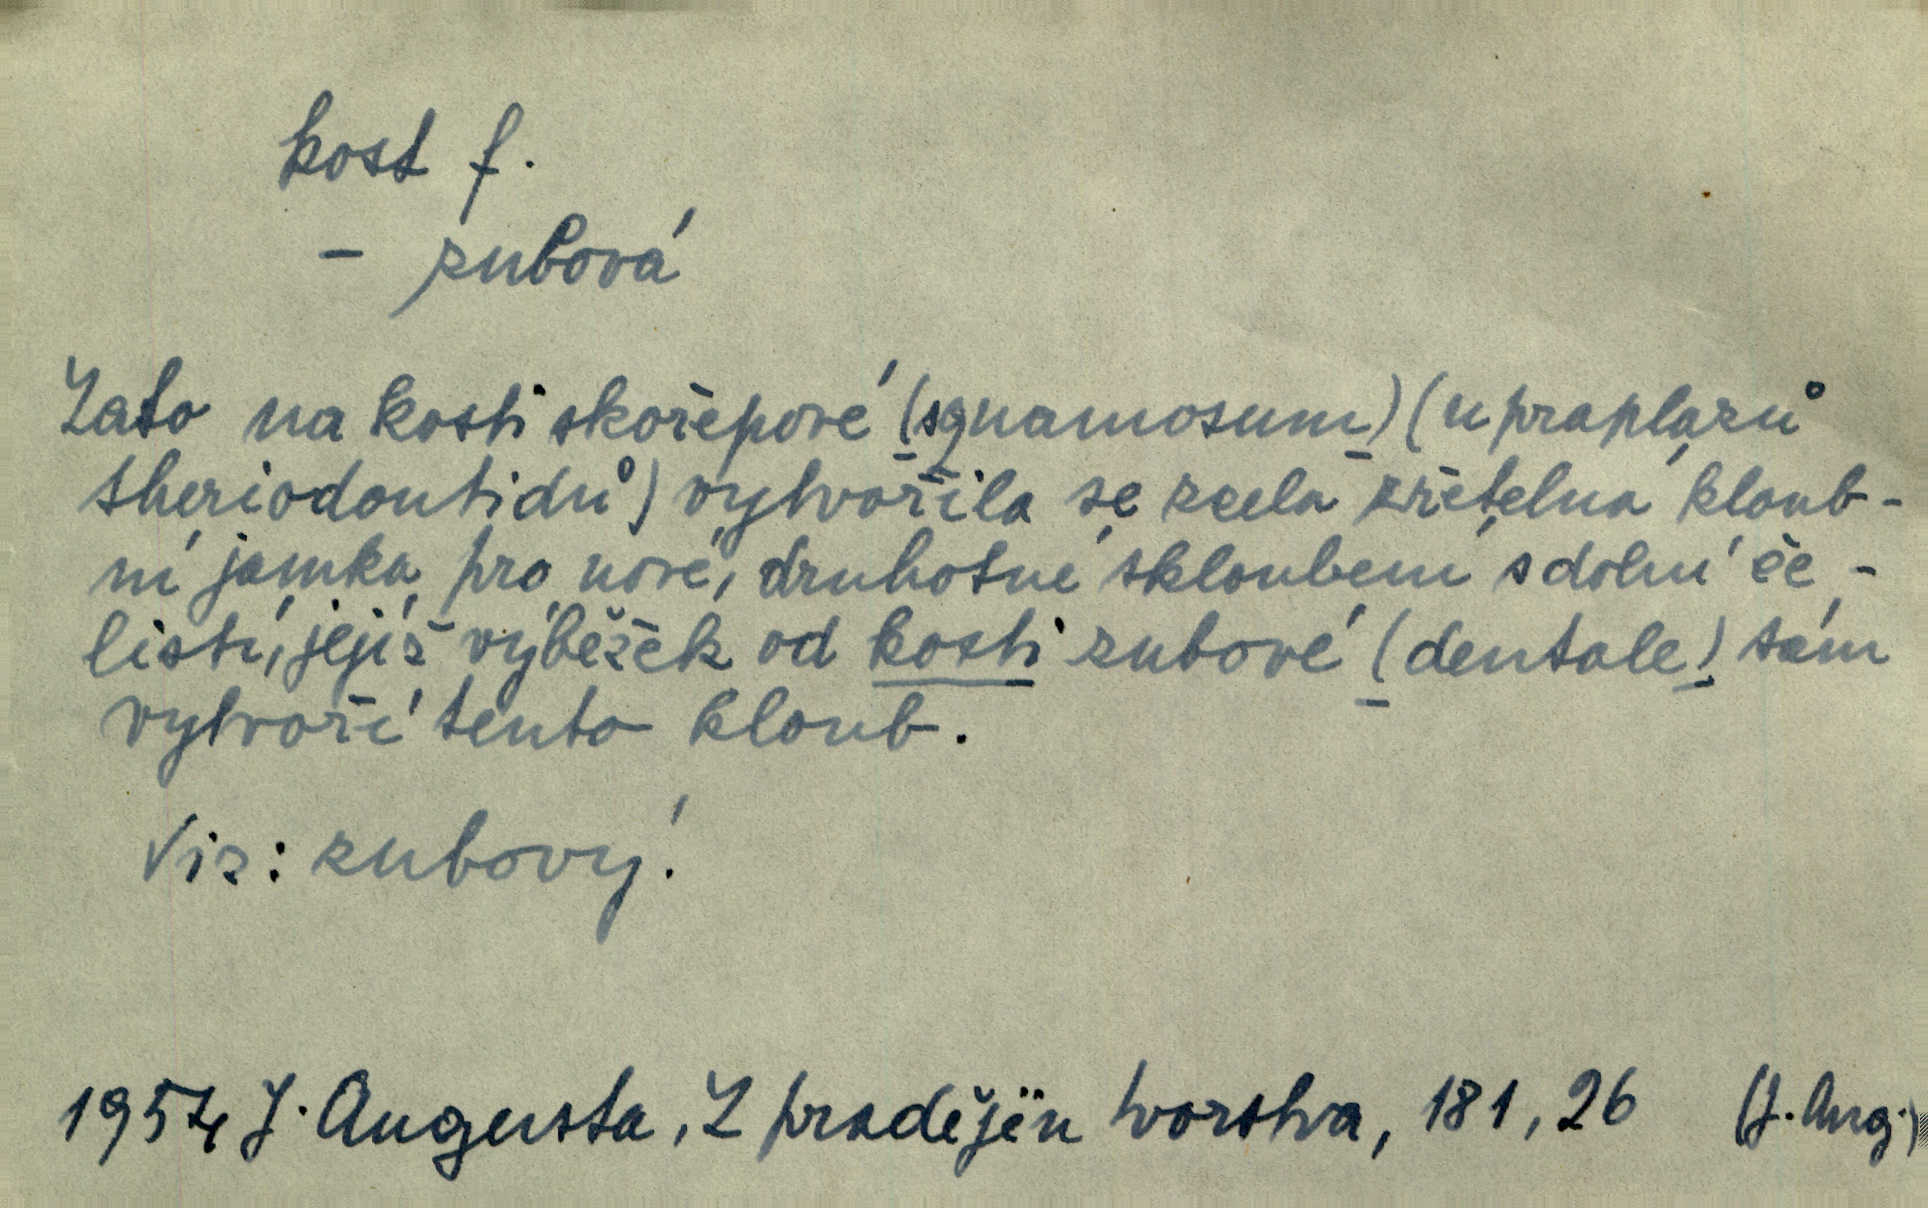 kost f.
– zubová
Zato na kosti skořepové (squamosum) (u praplazů
theriodontidů) vytvořila se zcela zřetelná kloub-
ní jamka pro nové, druhotné skloubení s dolní če-
listí, jejíž výběžek od kosti zubové (dentale) tám
vytvoří tento kloub.
Viz: zubový.
1954 J. Augusta, Z pradějin tvorstva, 181, 26 (J. Aug.)